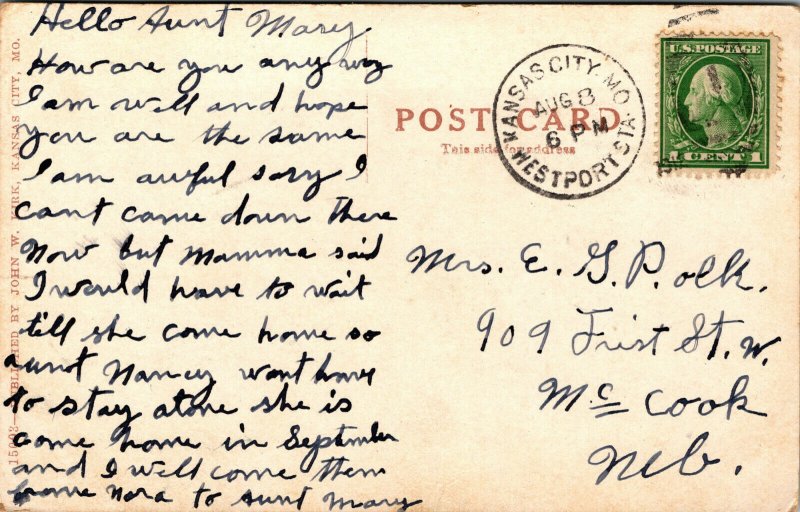 Hello Aunt Mary
How are you any way
I am well and hope
you are the same
I am awful sory I
cant came down there
now but Mamma said
I would have to wait
till she come home so
aunt Nancy wont have
to stay alone she is
come home in September
and I well come then
frome Nora to Aunt Mary
POST CARD
This side for address
KANSAS CITY, MO.
AUG 8
6 PM
WESTPORT STA.
U.S. POSTAGE
1 CENT 1
Mrs. E. G. Polk.
909 Frist St. W.
Mc Cook
Neb.
15003—PUBLISHED BY JOHN W. KIRK, KANSAS CITY, MO.